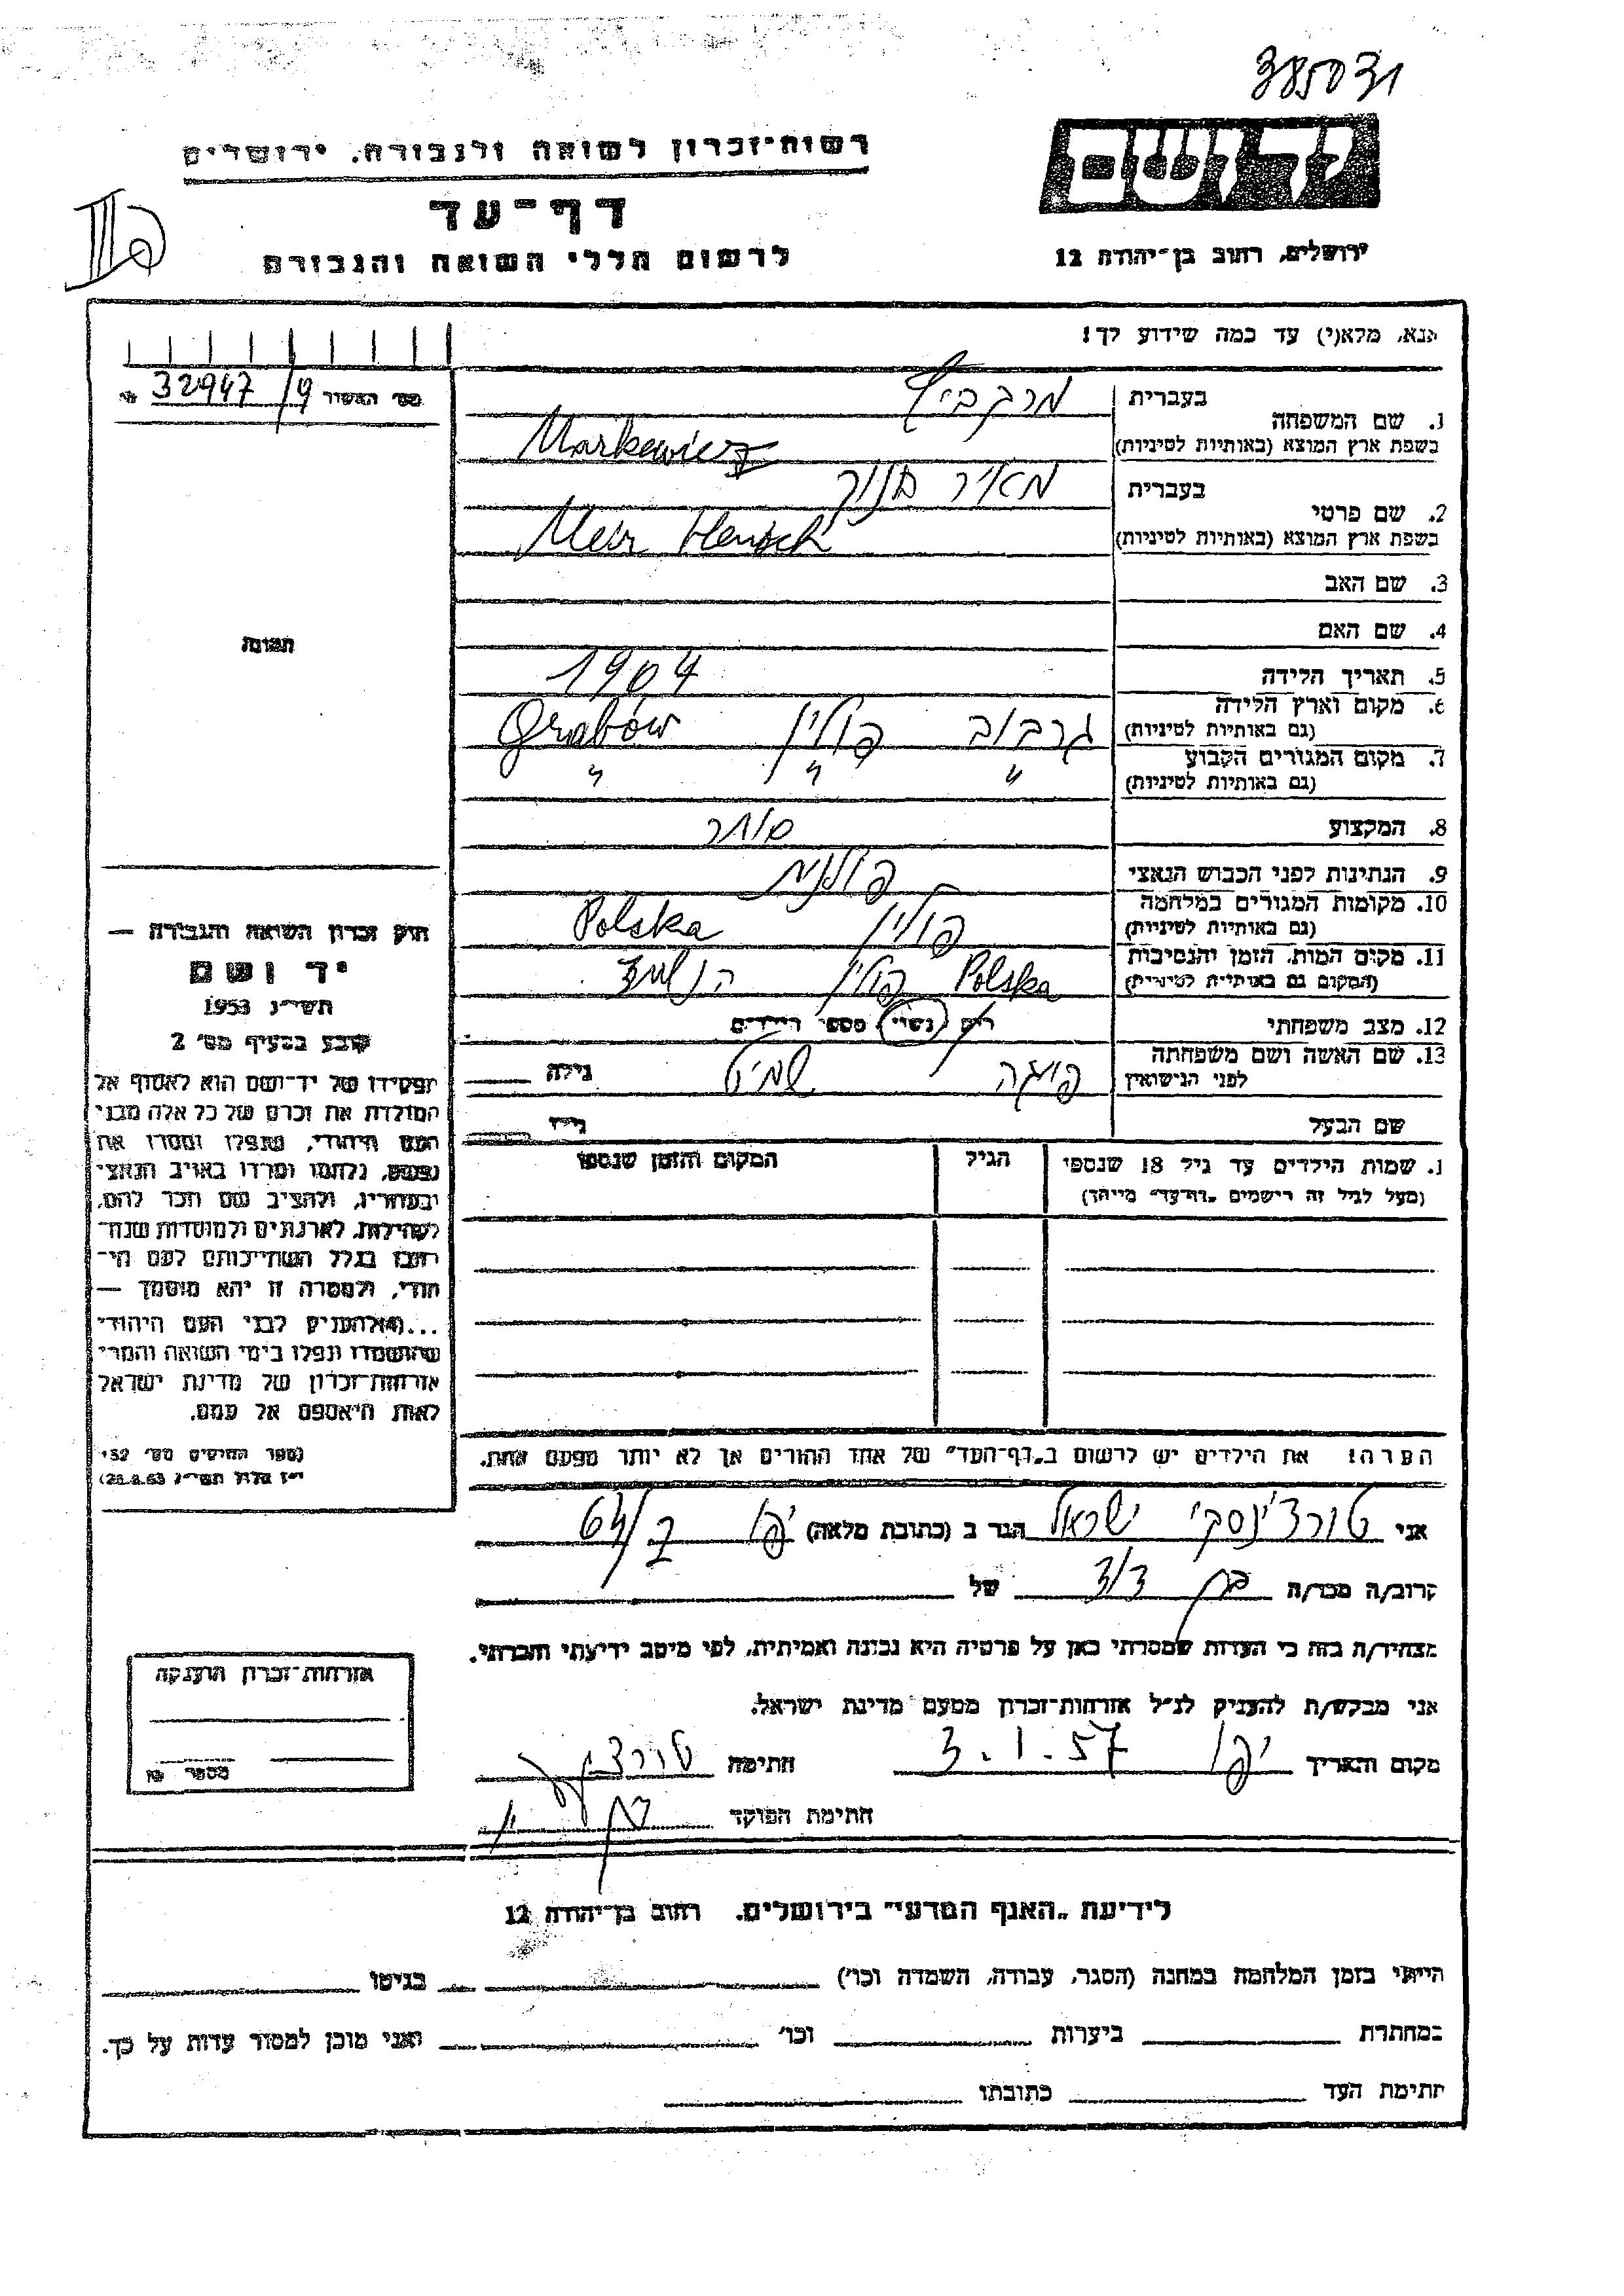 385031
רשות־זכרון לשואה ולגבורה, ירושלים
יד ושם
דף־עד
לרשום חללי השואה והגבורה
ירושלים, רחוב בן־יהודה 12
אנא, מלא(י) עד כמה שידוע לך!
מס׳ האשור 32947/9
1. שם המשפחה
בעברית
בשפת ארץ המוצא (באותיות לטיניות) Markewicz
2. שם פרטי
בעברית מאיר חנוך
בשפת ארץ המוצא (באותיות לטיניות) Meir Henoch
3. שם האב
4. שם האם
תמונה
5. תאריך הלידה 1904
6. מקום וארץ הלידה גרבוב פולין Grabów
(גם באותיות לטיניות)
7. מקום המגורים הקבוע " " "
(גם באותיות לטיניות)
8. המקצוע סוחר
9. הנתינות לפני הכבוש הנאצי פולנית
10. מקומות המגורים במלחמה פולין Polska
(גם באותיות לטיניות)
11. מקום המות, הזמן והנסיבות Polska פולין
(המקום גם באותיות לטיניות)
12. מצב משפחתי רווק / נשוי / מספר הילדים
13. שם האשה ושם משפחתה
לפני הנישואין פייגה גילה
שם הבעל גילו
1. שמות הילדים עד גיל 18 שנספו הגיל המקום והזמן שנספו
(מעל לגיל זה רישמים „דף־עד" מיוחד)
הערה! את הילדים יש לרשום ב„דף־העד" של אחד ההורים אך לא יותר מפעם אחת.
חוק זכרון השואה והגבורה —
יד ושם
תשי״ג 1953
קובע בסעיף מס׳ 2
תפקידו של יד־ושם הוא לאסוף אל
המולדת את זכרם של כל אלה מבני
העם היהודי, שנפלו ומסרו את
נפשם, נלחמו ומרדו באויב הנאצי
ובעוזריו, ולהציב שם וזכר להם,
לקהילות, לארגונים ולמוסדות שנח־
רבו בגלל השתייכותם לעם הי־
הודי, ולמטרה זו יהא מוסמך —
...(4) להעניק לבני העם היהודי
שהושמדו ונפלו בימי השואה והמרי
אזרחות־זכרון של מדינת ישראל
לאות היאספם אל עמם.
(ספר החוקים מס׳ 132
י״ז אלול תשי״ג 28.8.53)
אני טורצ'ינסקי ישראל הגר ב (כתובת מלאה) יפו 64/
קרוב/ה מכר/ה בן דוד של
מצהיר/ה בזה כי העדות שמסרתי כאן על פרטיה היא נכונה ואמיתית, לפי מיטב ידיעתי והכרתי.
אני מבקש/ת להעניק לנ״ל אזרחות־זכרון מטעם מדינת ישראל.
מקום ותאריך יפו 3.1.57 חתימה
חתימת הפוקד
אזרחות־זכרון הוענקה
מספר
לידיעת „האגף המדעי" בירושלים, רחוב בן־יהודה 12
הייתי בזמן המלחמה במחנה (הסגר, עבודה, השמדה וכו׳) בגיטו
במחתרת ביערות וכו׳ ואני מוכן למסור עדות על כך.
חתימת העד כתובתו